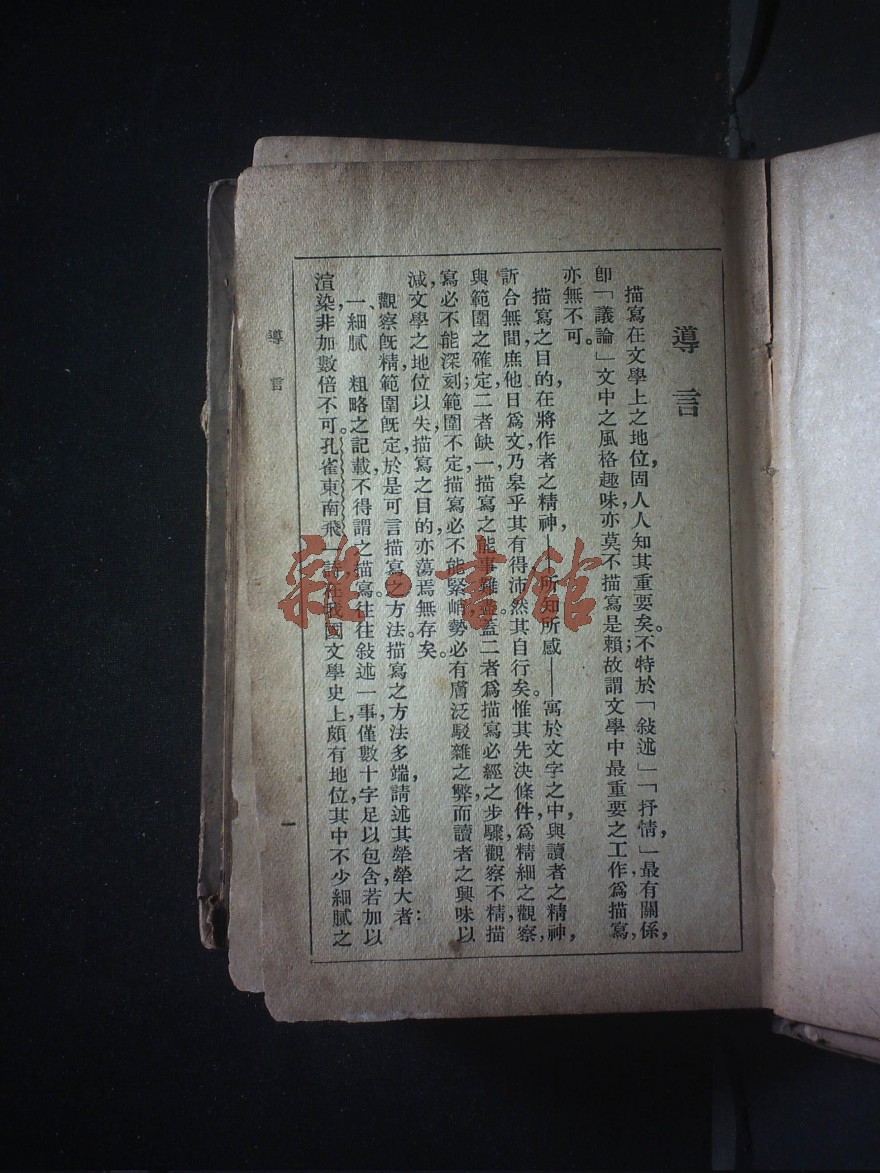 導言
描寫在文學上之地位,固人人知其重要矣。不特於「敍述」「抒情」最有關係,
卽「議論」文中之風格趣味,亦莫不描寫是賴;故謂文學中最重要之工作爲描寫,
亦無不可。
描寫之目的,在將作者之精神,——所知所感——寓於文字之中,與讀者之精神,
訢合無間,庶他日爲文,乃皋乎其有得,沛然其自行矣。惟其先決條件,爲精細之觀察,
與範圍之確定;二者缺一,描寫之能事難。蓋二者爲描寫必經之步驟,觀察不精,描
寫必不能深刻;範圍不定,描寫必不能緊峭,勢必有膚泛駁雜之弊,而讀者之興味以
減,文學之地位以失,描寫之目的,亦蕩焉無存矣。
觀察旣精,範圍旣定,於是可言描寫之方法。描寫之方法多端,請述其犖犖大者:
一、細膩 粗略之記載,不得謂之描寫。往往敍述一事,僅數十字足以包含,若加以
渲染,非加數倍不可。孔雀東南飛一詩在我國文學史上頗有地位,其中不少細膩之
導言
一
雜·書館